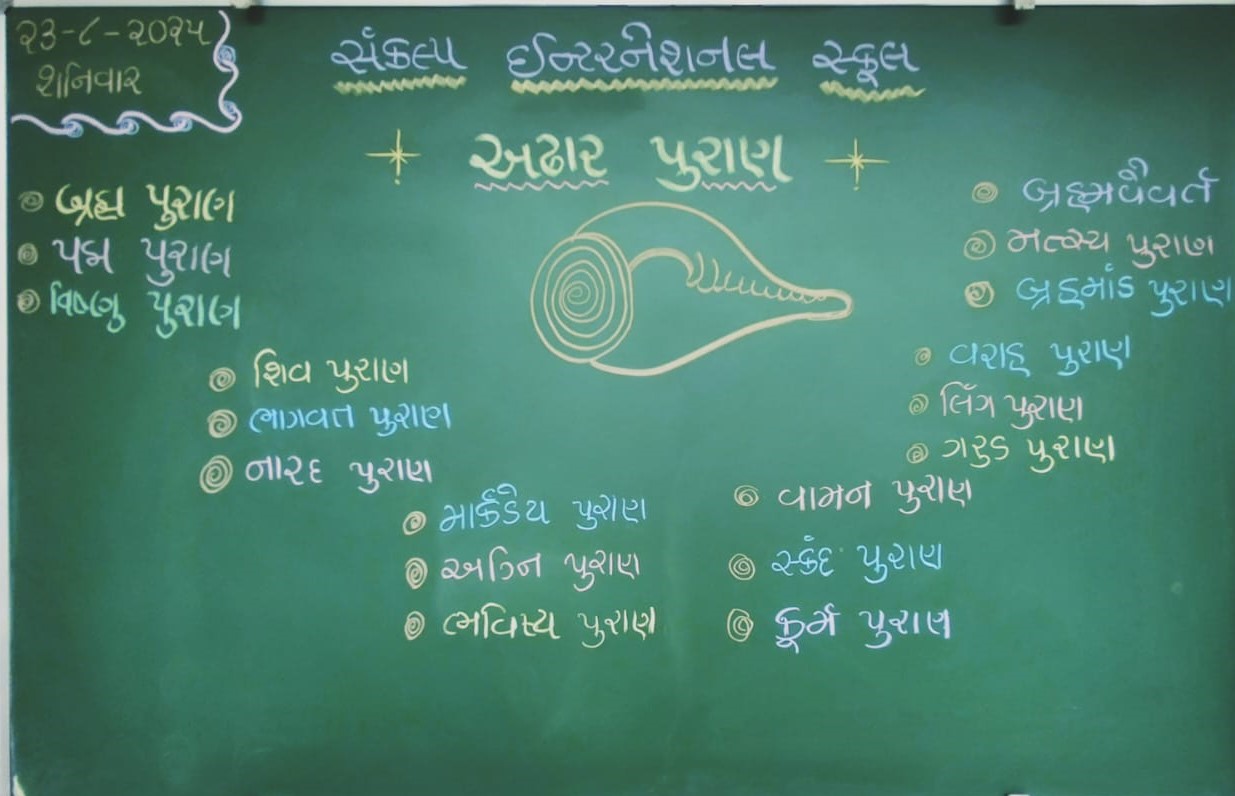 ૨૩-૮-૨૦૨૫
શનિવાર
સંકલ્પ ઈન્ટરનેશનલ સ્કૂલ
અઢાર પુરાણ
બ્રહ્મ પુરાણ
પદ્મ પુરાણ
વિષ્ણુ પુરાણ
શિવ પુરાણ
ભાગવત પુરાણ
નારદ પુરાણ
માર્કંડેય પુરાણ
અગ્નિ પુરાણ
ભવિષ્ય પુરાણ
બ્રહ્મવૈવર્ત
મત્સ્ય પુરાણ
બ્રહ્માંડ પુરાણ
વરાહ પુરાણ
લિંગ પુરાણ
ગરુડ પુરાણ
વામન પુરાણ
સ્કંદ પુરાણ
કૂર્મ પુરાણ